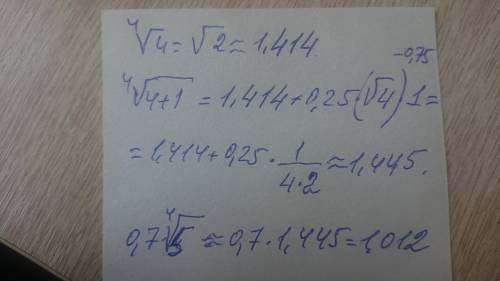 ⁴√4 = √2 ≈ 1,414.
⁴√(4+1) = 1,414 + 0,25·(√4)^(-0,75)·1 =
= 1,414 + 0,25 · 1/(4·2) ≈ 1,445.
0,7 ⁴√5 ≈ 0,7 · 1,445 = 1,012